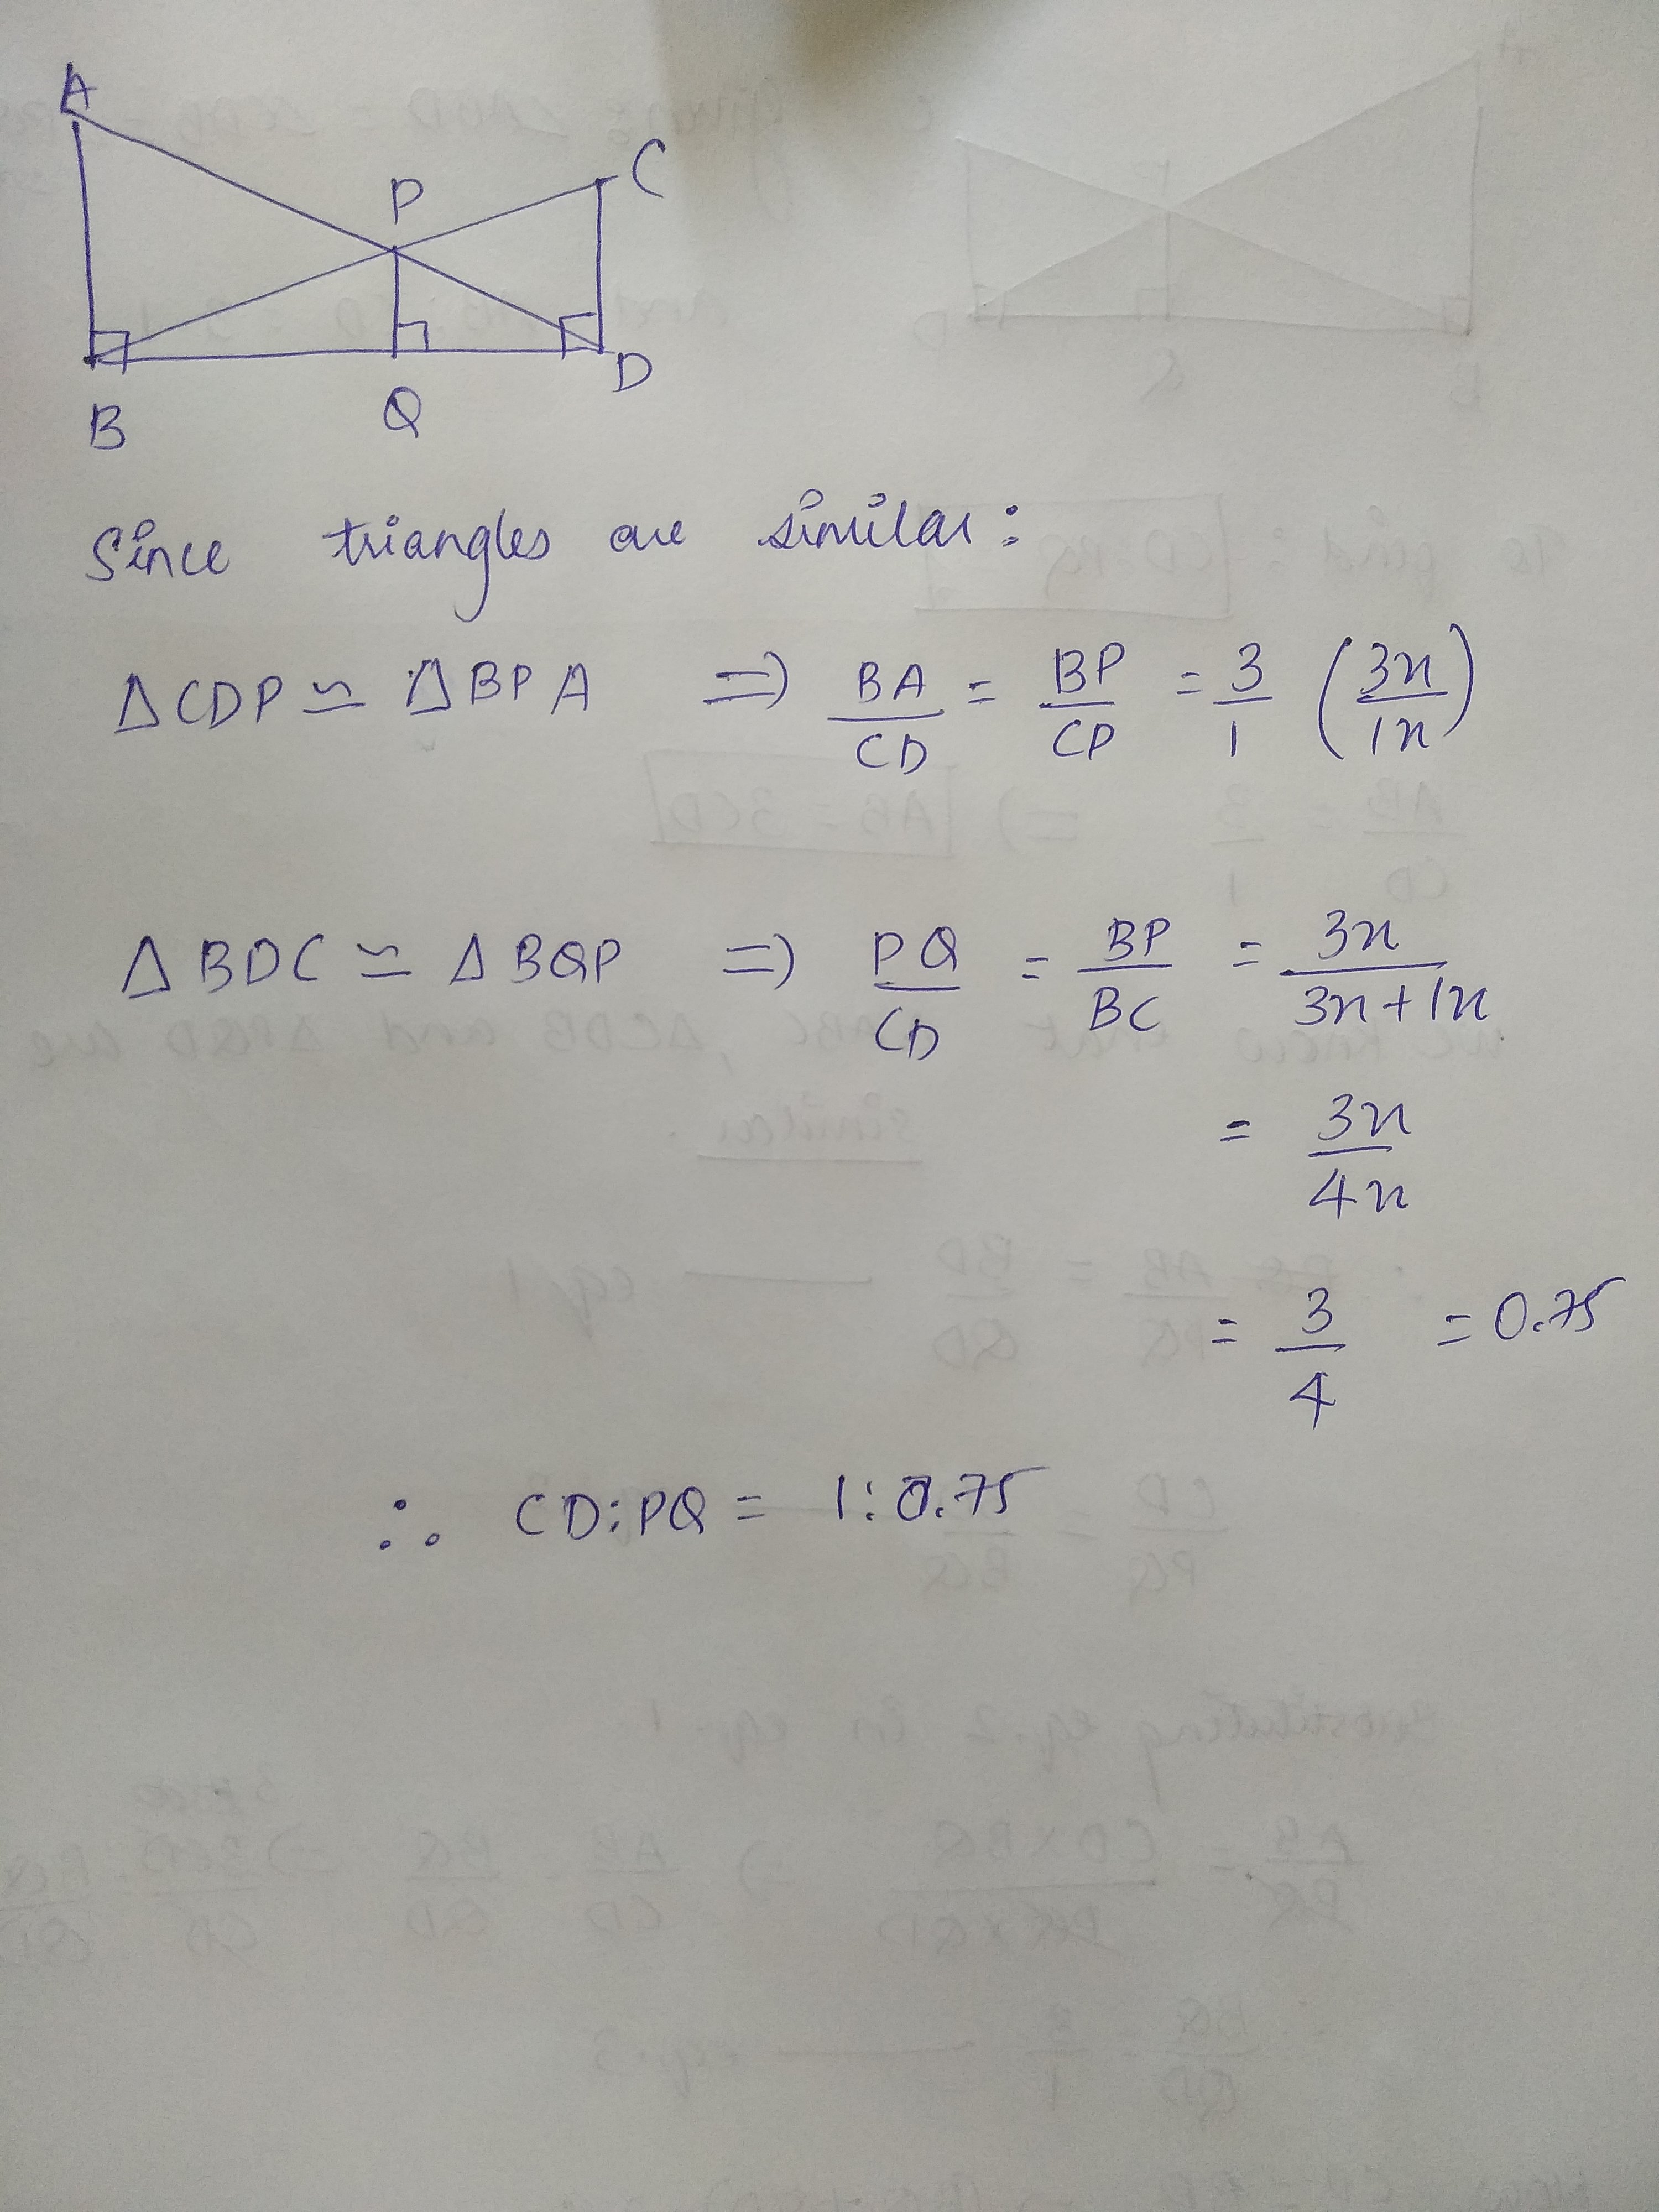 A
C
P
B
Q
D
Since triangles are similar:
△CDP ≃ △BPA ⇒ BA/CD = BP/CP = 3/1 (3x/1x)
△BDC ≃ △BQP ⇒ PQ/CD = BP/BC = 3x/3x+1x
= 3x/4x
= 3/4 = 0.75
∴ CD:PQ = 1:0.75